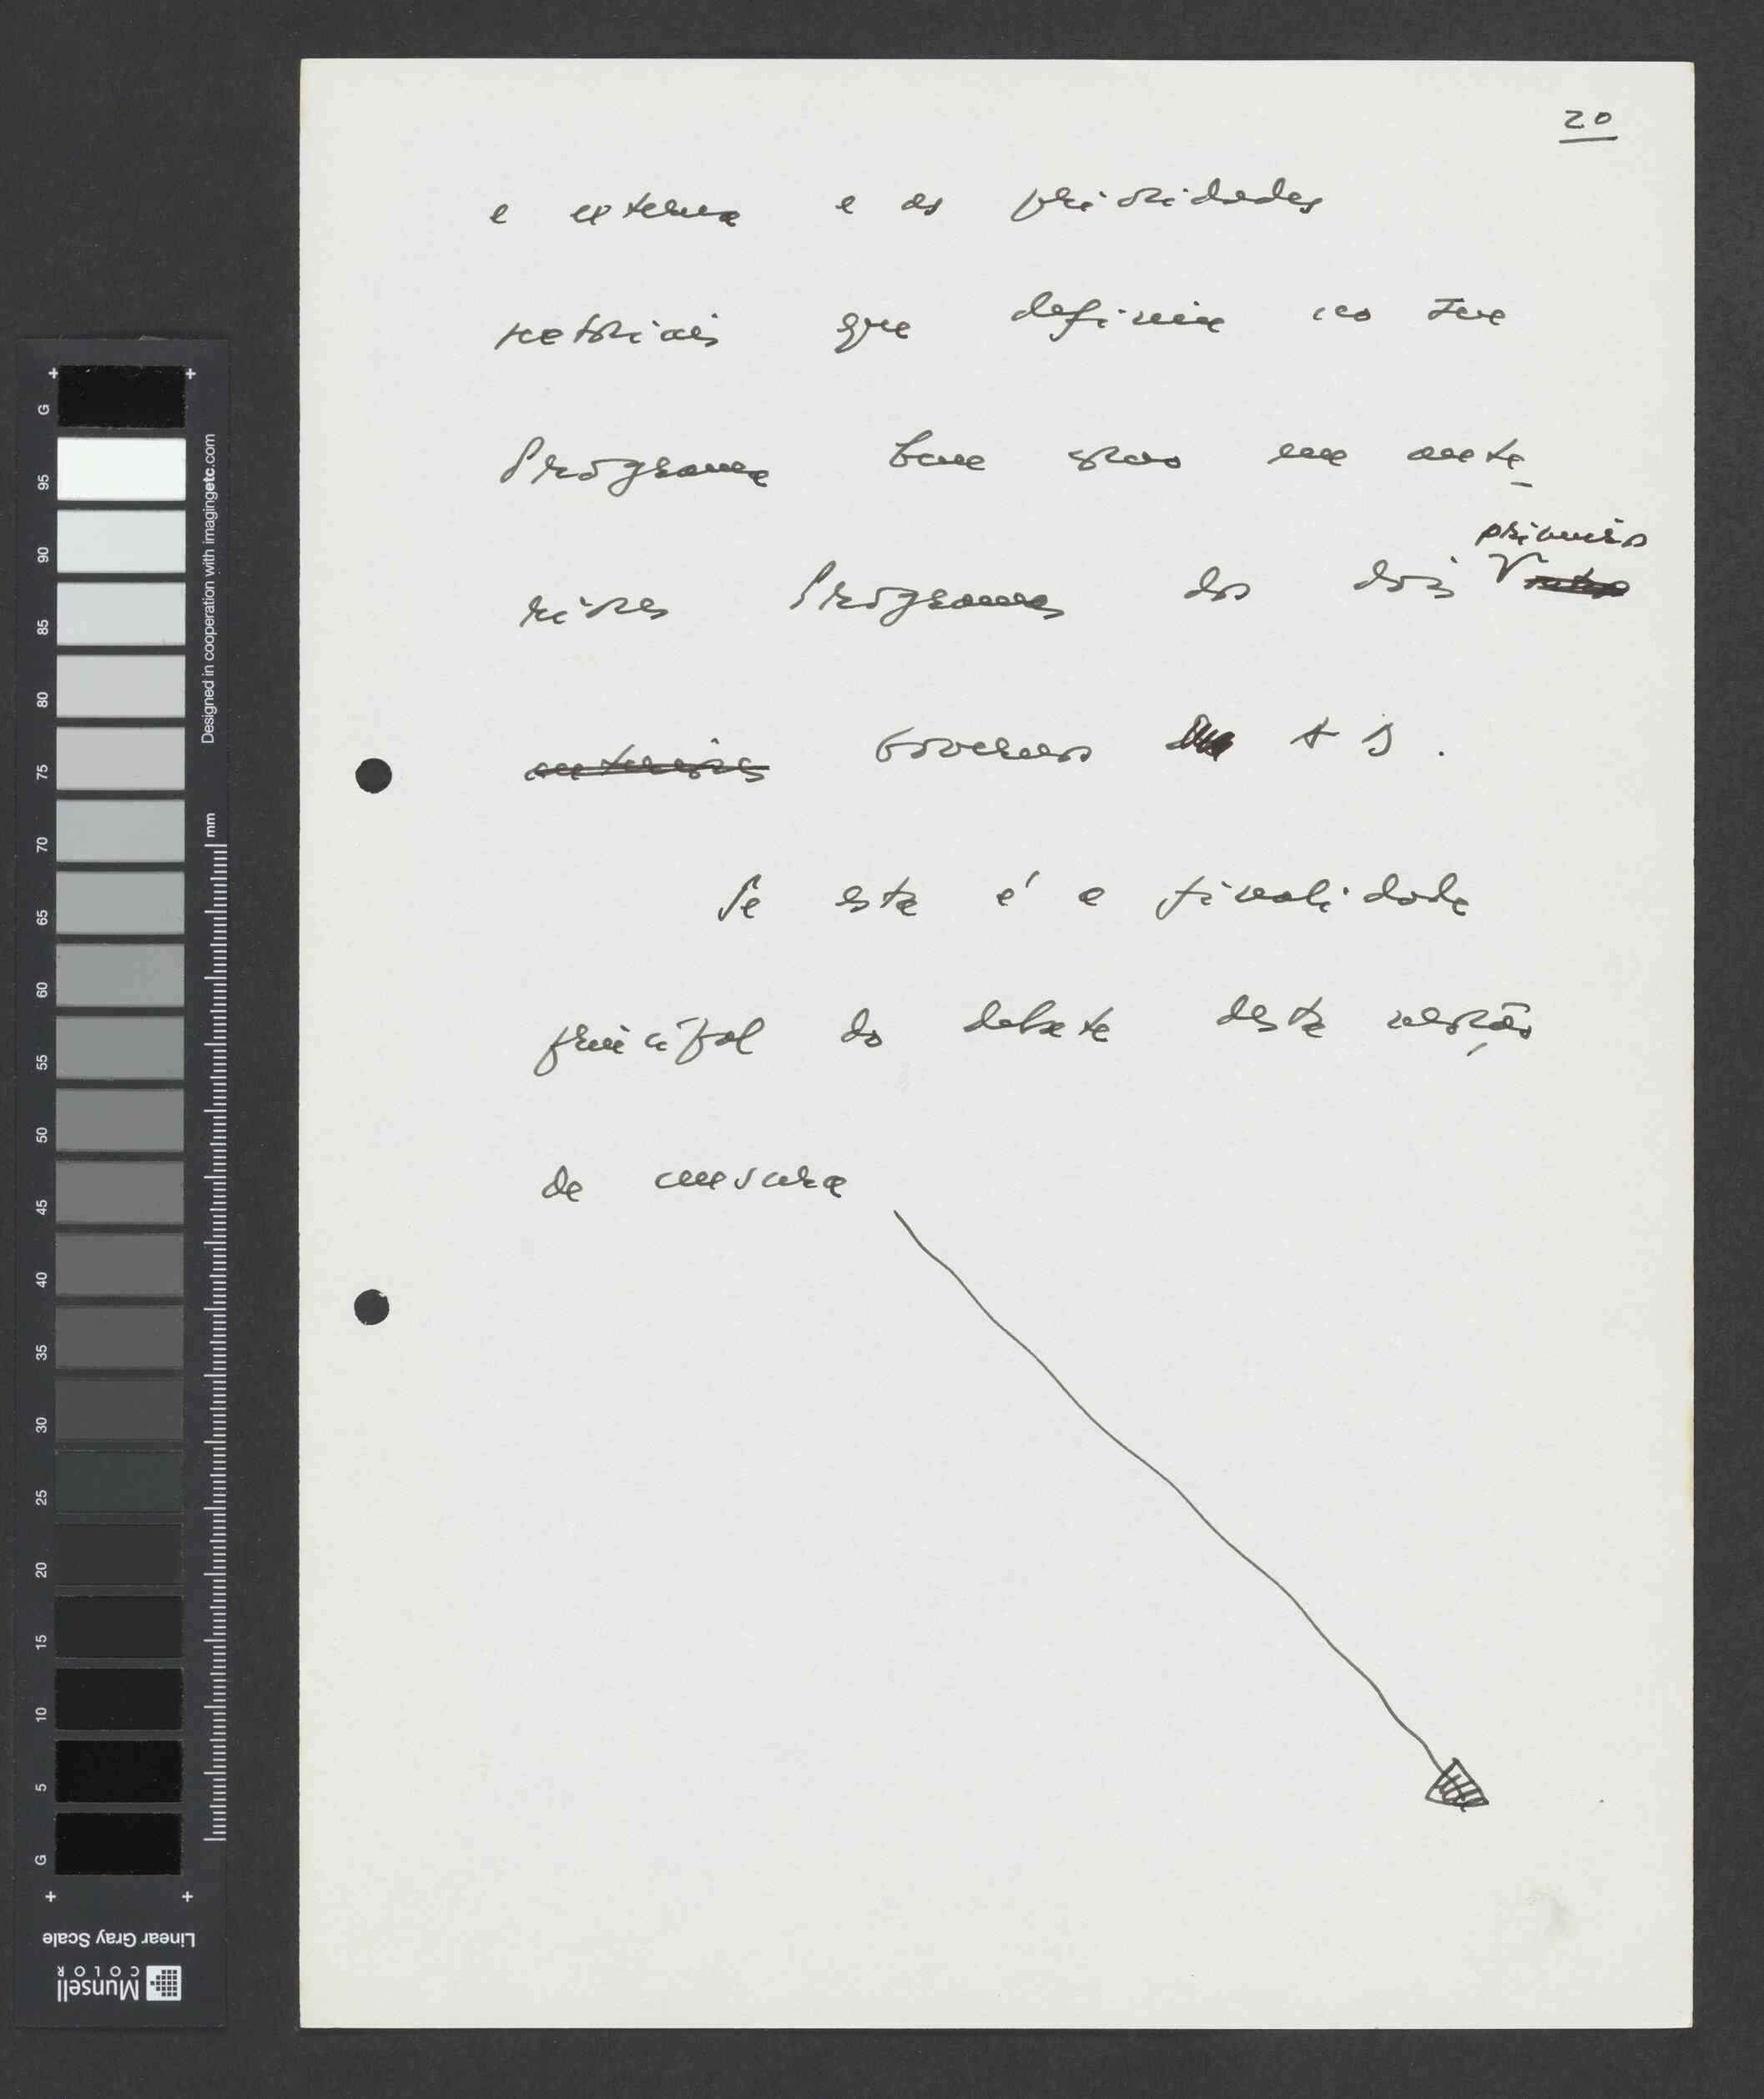 20
e externa e as prioridades
setoriais que definia no seu
Programa
riores Programas dos dois
primeiros
Governos AD.
Se esta é a finalidade
principal do debate desta moção
de censura
G
95
90
85
80
75
70
65
60
55
50
45
40
35
30
25
20
15
10
5
G
Designed in cooperation with imagingetc.com
mm
Linear Gray Scale
Munsell
COLOR